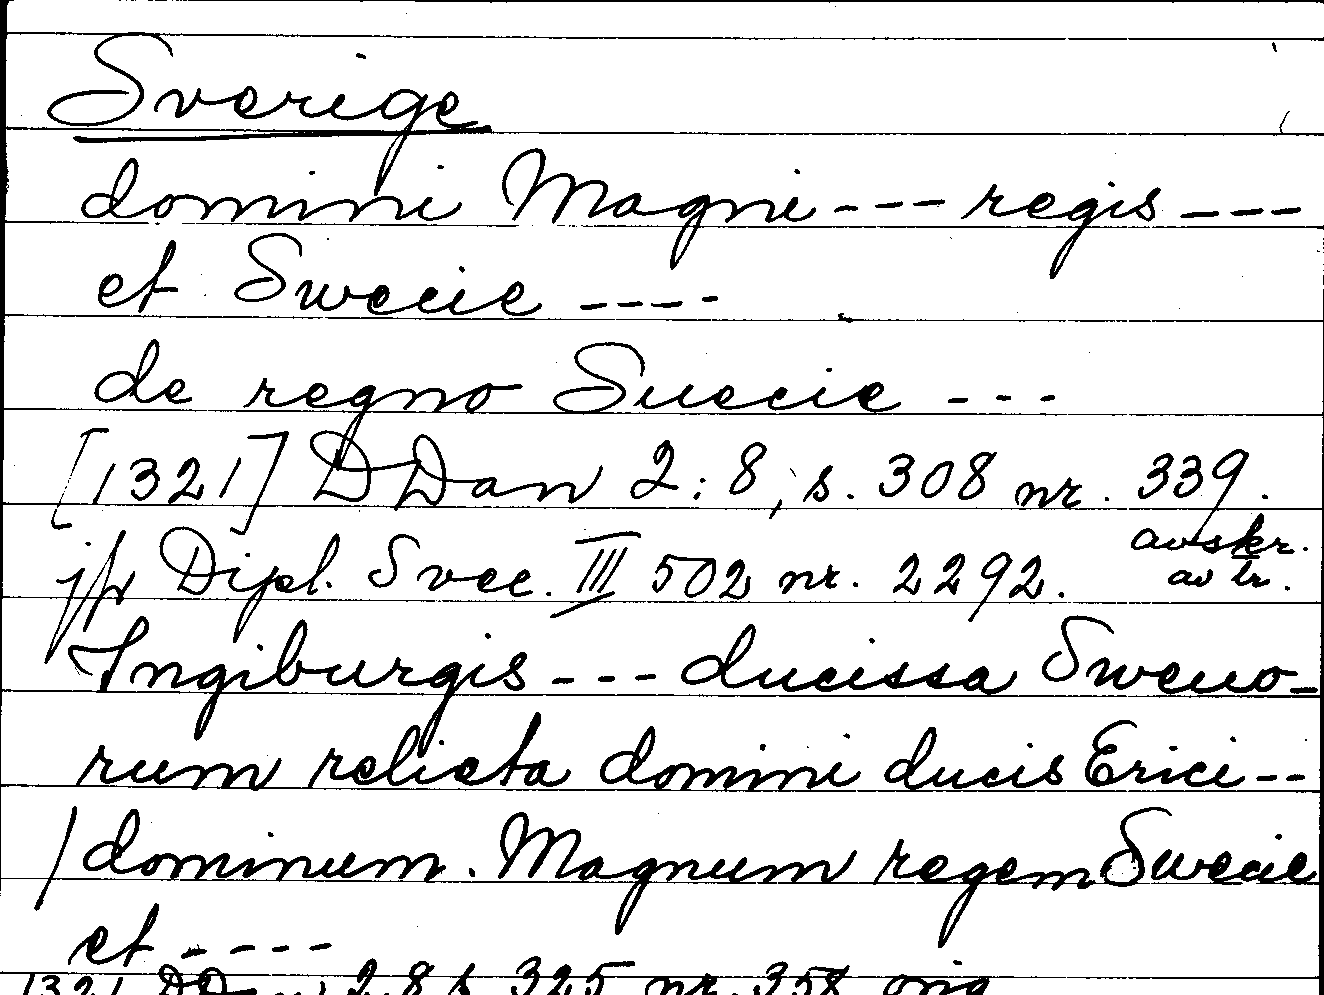 Sverige
domini Magni --- regis ---
et Swecie ----
de regno Suecie ---
[1321] DDan 2:8, s. 308 nr. 339.
avskr.
jfr Dipl. Svec. III 502 nr. 2292. av tr.
Ingiburgis --- ducissa Sweno-
rum relicta domini ducis Erici --
/dominum. Magnum regem Swecie
et ----
1321 DDan 2:8 s. 325 nr. 358 orig